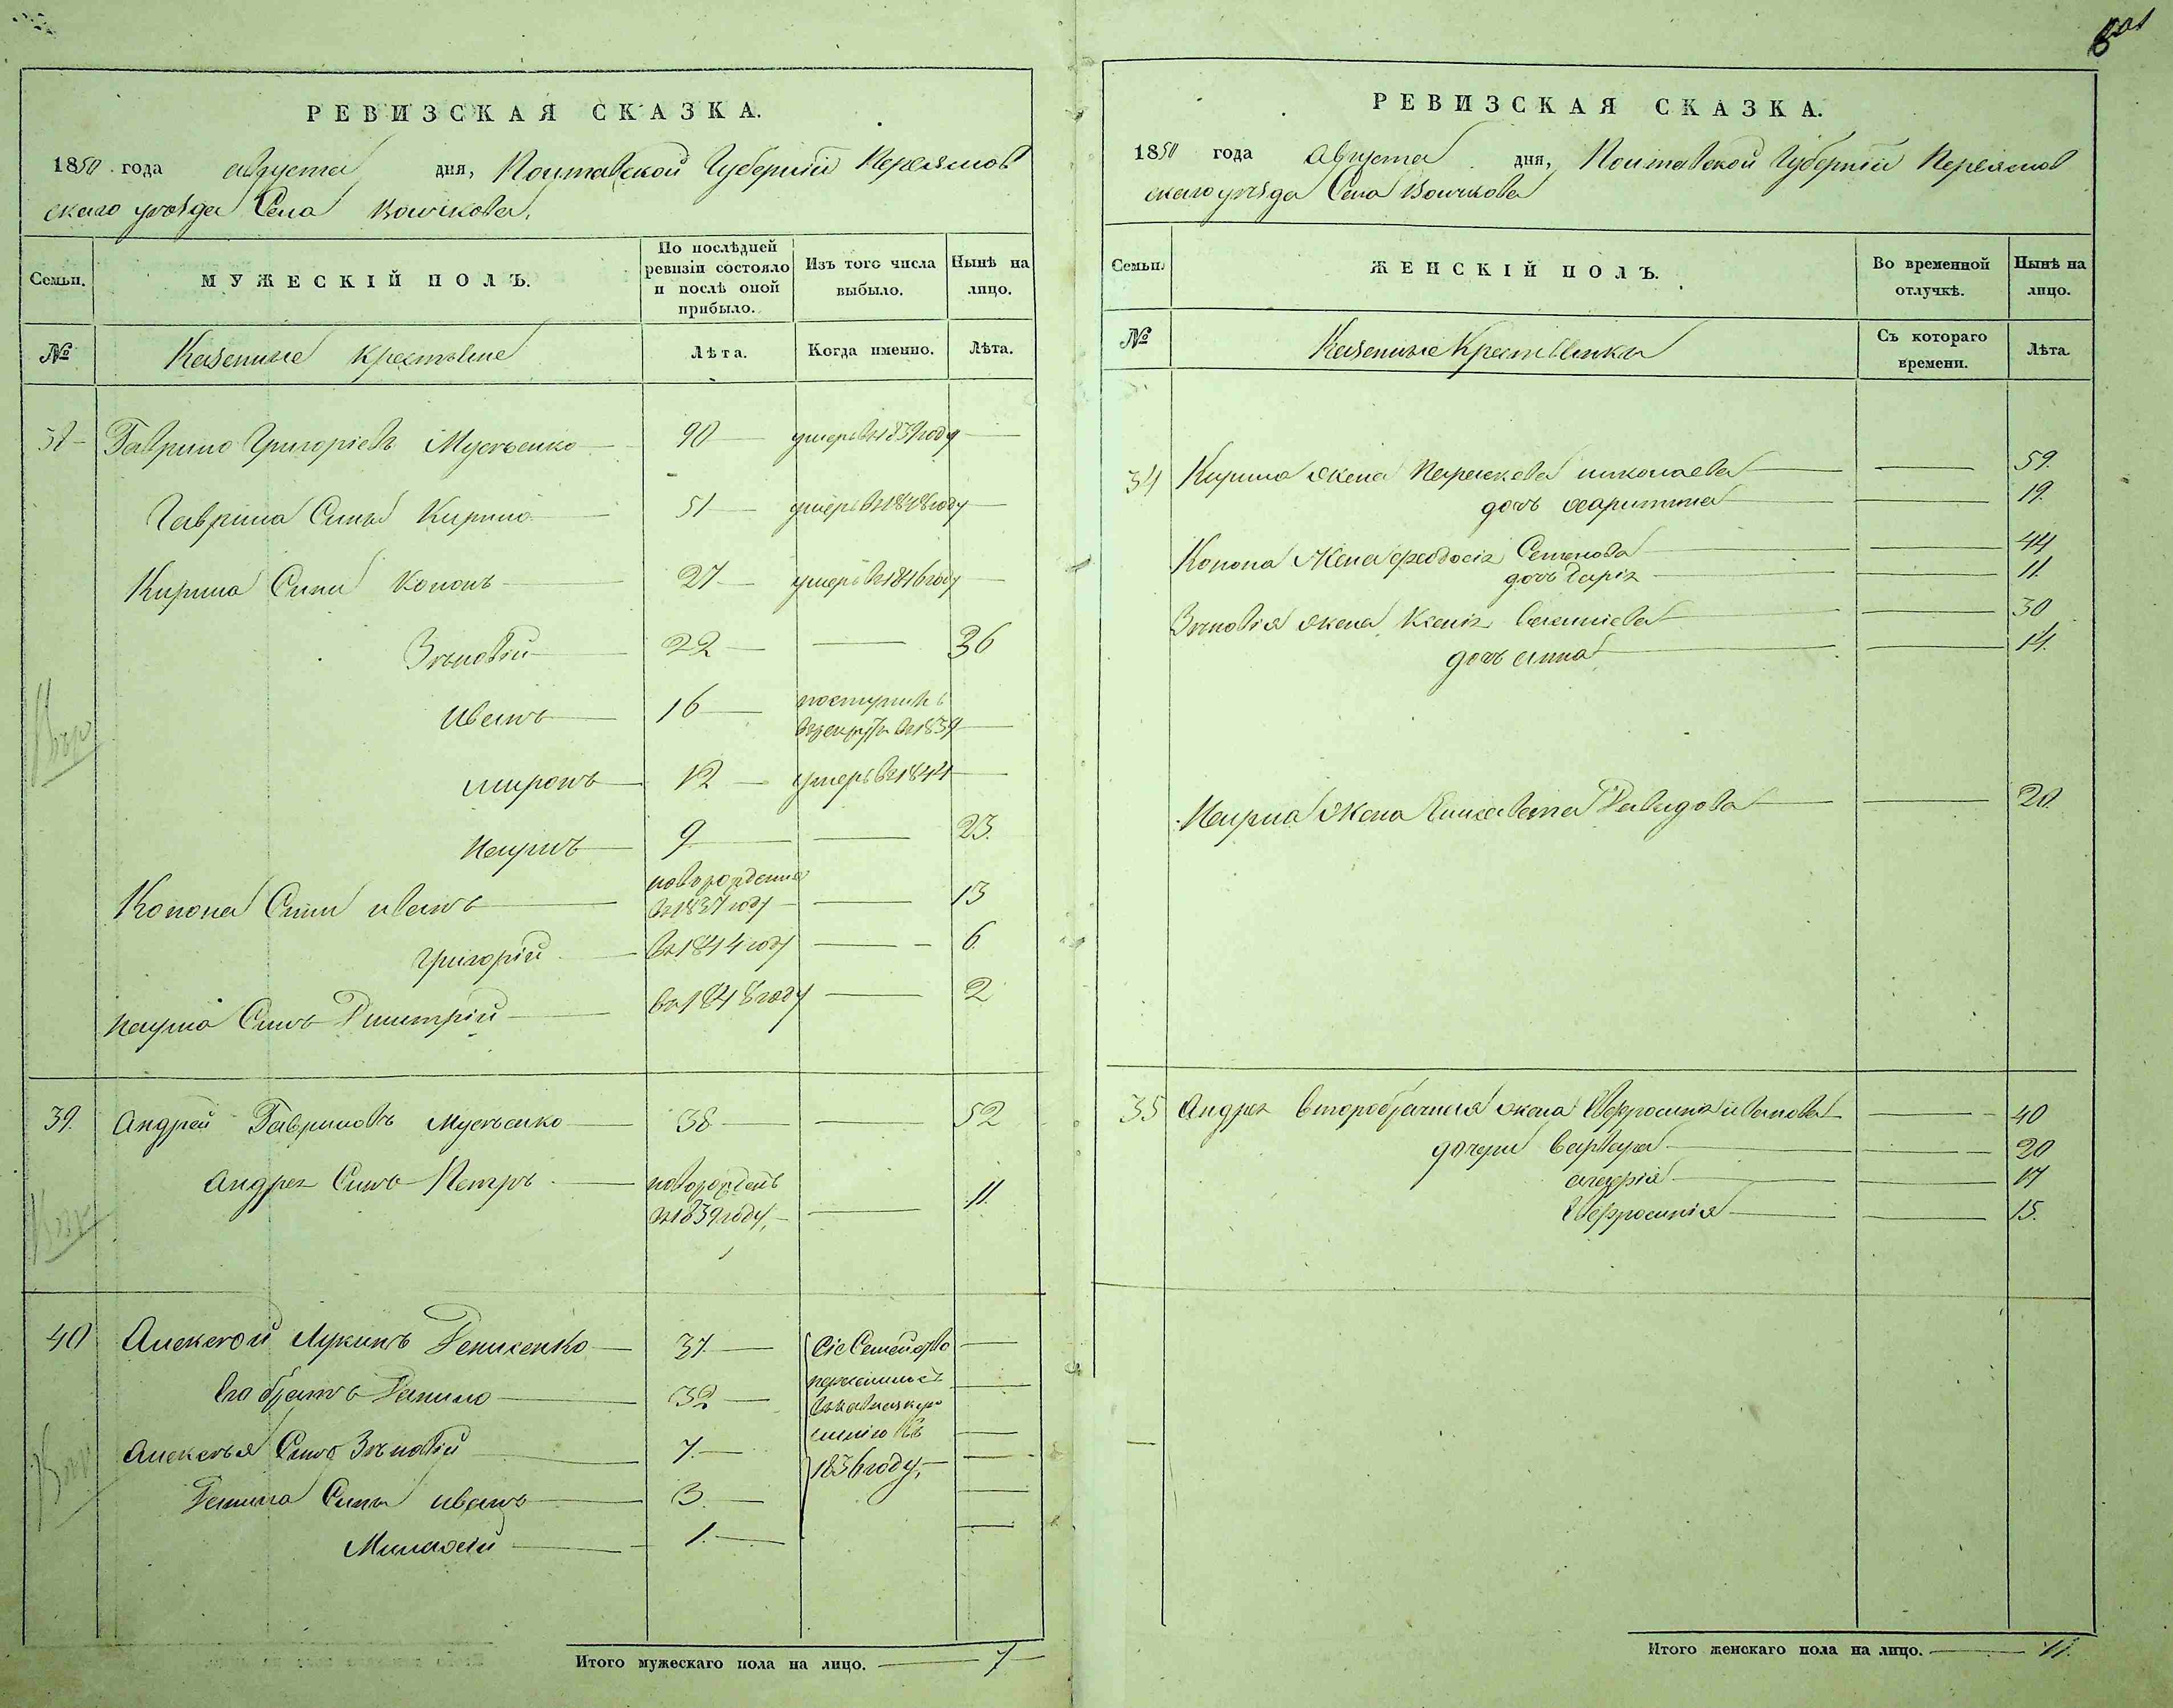 РЕВИЗСКАЯ СКАЗКА.
1850 года августа дня, Полтавской Губерніи Переяслов
скаго уезда Села Вовчкова,
Семьи.
МУЖЕСКІЙ ПОЛЪ.
По послѣдней
ревизіи состояло
и послѣ оной
прибыло.
Изъ того числа
выбыло.
Нынѣ на
лицо.
№
Казенные крестьяне
Лѣта.
Когда именно.
Лѣта.
Гаврило Григоріевъ Мусѣенко 90 умеръ въ 1839 году
Гаврила Сынъ Кирило 51 умеръ въ 1848 году
Кирила Сыны Кононъ 27 умеръ въ 1846 году
Зѣновій 22 36
Иванъ 16 поступилъ
въ рекруты въ 1839
Миронъ 12 умеръ въ 1844
Наумъ 9 23.
Конона Сыны Иванъ новорожденна
въ 1837 году 13
Григорій въ 1844 году 6.
Наума Сынъ Дмитрій въ 1848 году 2
39. Андрей Гавриловъ Мусѣенко 38 52
Андрея Сынъ Петръ новорожденъ
въ 1839 году, 11.
40 Алексѣй Лукинъ Денисенко 37. Сіе Семейство
Его братъ Данило 32
Алексѣя Сынъ Зѣновій 7.
Данила Сыны Иванъ 3. 1836 году,
1.
Итого мужескаго пола на лицо. 7
РЕВИЗСКАЯ СКАЗКА.
1850 года Августа дня, Полтавской Губерніи Переяслов
скаго уезда Села Вовчкова
Семьи.
ЖЕНСКІЙ ПОЛЪ.
Во временной
отлучкѣ.
Нынѣ на
лицо.
№
Казенные Крестьянки
Съ котораго
времени.
Лѣта.
34 Кирила жена Параскева Николаева 59.
дочь Харитина 19.
Конона Жена Феодосія Семенова 44
дочь Дарія 11.
Зѣновія жена Ксенія 30
дочь Анна 14.
Наума Жена Елисавета Давидова 20.
35 Андрея второбрачная жена Евфросинія Иванова 40
дочери Варвара 20
Марія 17
Евфросинія 15.
Итого женскаго пола на лицо. 11.